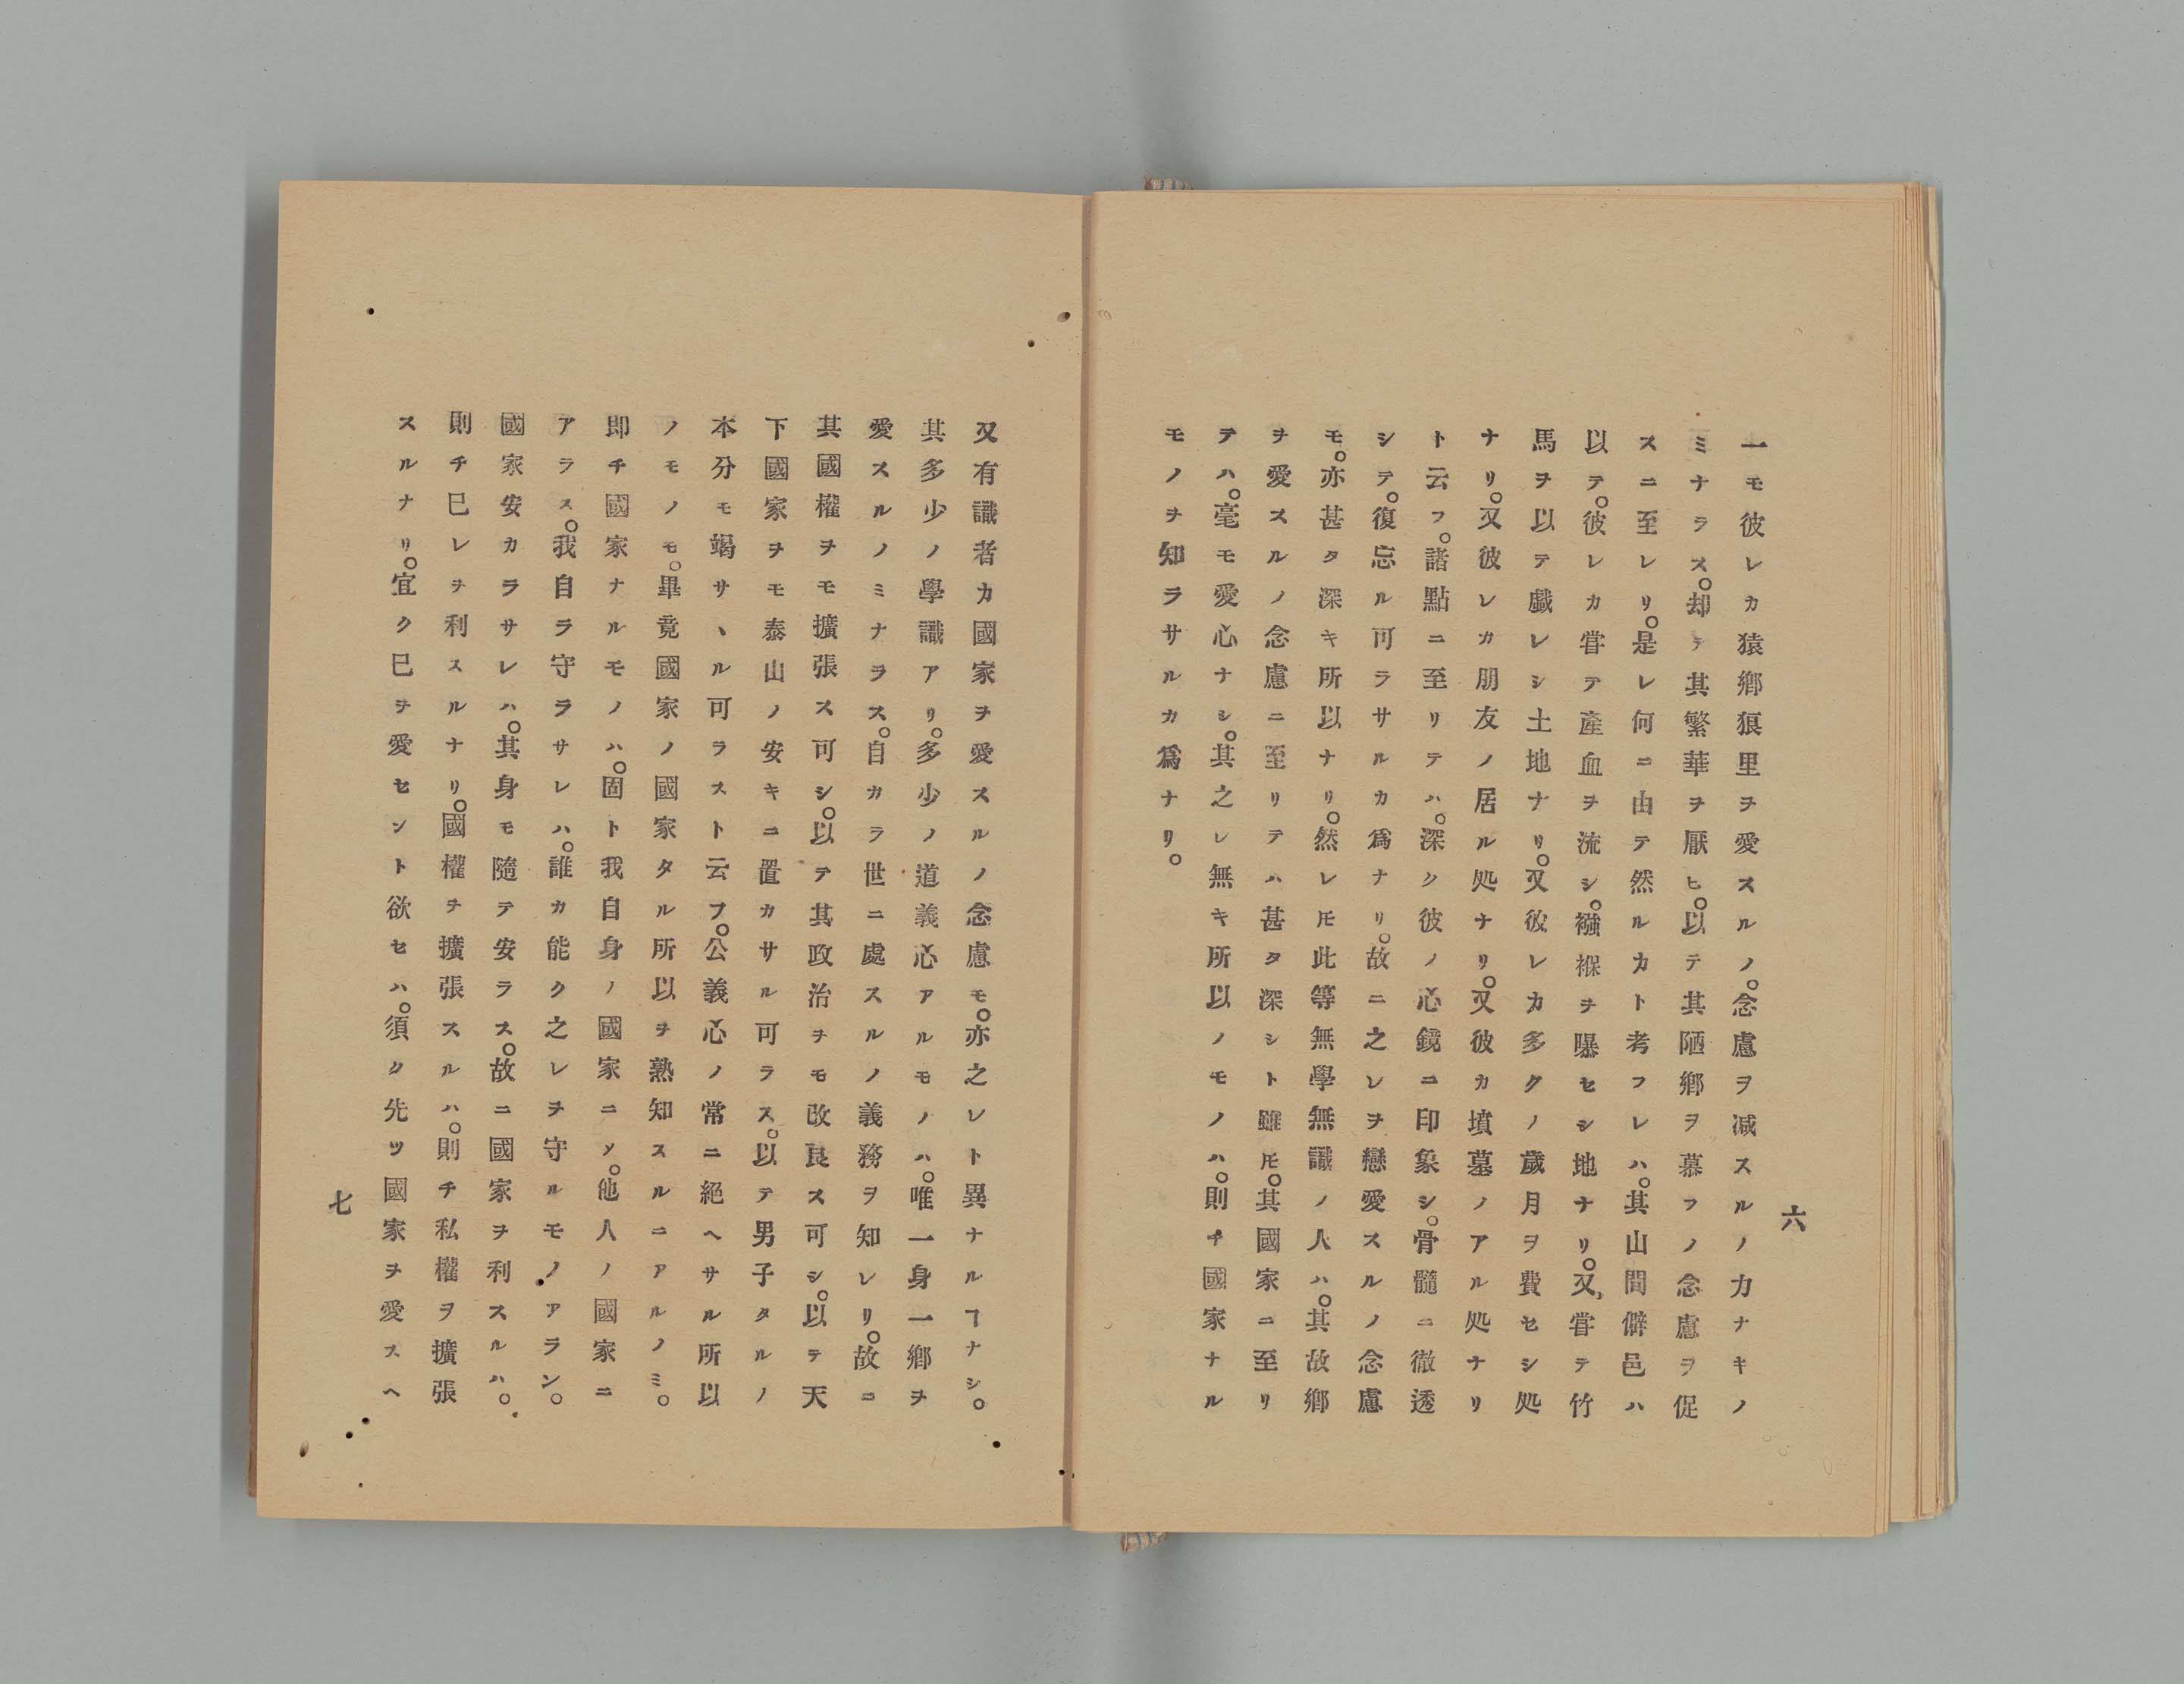 六
一モ彼レカ猿鄕狽里ヲ愛スルノ。念慮ヲ减スルノ力ナキノ
ミナラス。却テ其繁華ヲ厭ヒ。以テ其陋鄕ヲ慕フノ念慮ヲ促
スニ至レリ。是レ何ニ由テ然ルカト考フレハ。其山間僻邑ハ
以テ。彼レカ甞テ產血ヲ流シ。襁褓ヲ曝セシ地ナリ。又甞テ竹
馬ヲ以テ戯レシ土地ナリ。又彼レカ多クノ歲月ヲ費セシ処
ナリ。又彼レカ朋友ノ居ル処ナリ。又彼カ墳墓ノアル処ナリ
ト云フ。諸點ニ至リテハ。深ク彼ノ心鏡ニ印象シ。骨髓ニ徹透
シテ。復忘ル可ラサルカ爲ナリ。故ニ之レヲ戀愛スルノ念慮
モ。亦甚タ深キ所以ナリ。然レ𪜈此等無學無識ノ人ハ。其故鄕
ヲ愛スルノ念慮ニ至リテハ甚タ深シト雖𪜈。其國家ニ至リ
テハ。毫モ愛心ナシ。其之レ無キ所以ノモノハ。則チ國家ナル
モノヲ知ラサルカ爲ナリ。
又有識者カ國家ヲ愛スルノ念慮モ。亦之レト異ナルヿナシ。
其多少ノ學識アリ。多少ノ道義心アルモノハ。唯一身一鄕ヲ
愛スルノミナラス。自カラ世ニ處スルノ義務ヲ知レリ。故ニ
其國權ヲモ擴張ス可シ。以テ其政治ヲモ改良ス可シ。以テ天
下國家ヲモ泰山ノ安キニ置カサル可ラス。以テ男子タルノ
本分モ竭サヽル可ラスト云フ。公義心ノ常ニ絕ヘサル所以
ノモノモ。畢竟國家ノ國家タル所以ヲ熟知スルニアルノミ。
即チ國家ナルモノハ。固ト我自身ノ國家ニソ。他人ノ國家ニ
アラス。我自ラ守ラサレハ。誰カ能ク之レヲ守ルモノアラン。
國家安カラサレハ。其身モ隨テ安ラス。故ニ國家ヲ利スルハ。
則チ已レヲ利スルナリ。國權チ擴張スルハ。則チ私權ヲ擴張
スルナリ。宜ク已ヲ愛セント欲セハ。須ク先ツ國家ヲ愛スヘ
七